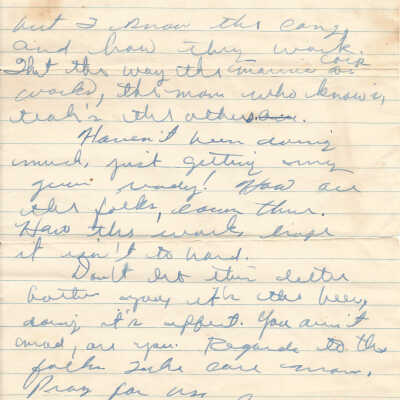 but I know the cong,
and how they work.
That the way the marine corp
works, the man who knows,
teah's the others.
Haven't been doing
much, just getting my
gear ready! How are
the folks, down there.
How the work, hope
it isn't to hard.
Don't let this letter
bother you, it's the beer,
doing it's effert. You ain't
mad, are you. Regards to the
folks. Take care mom.
Pray for us